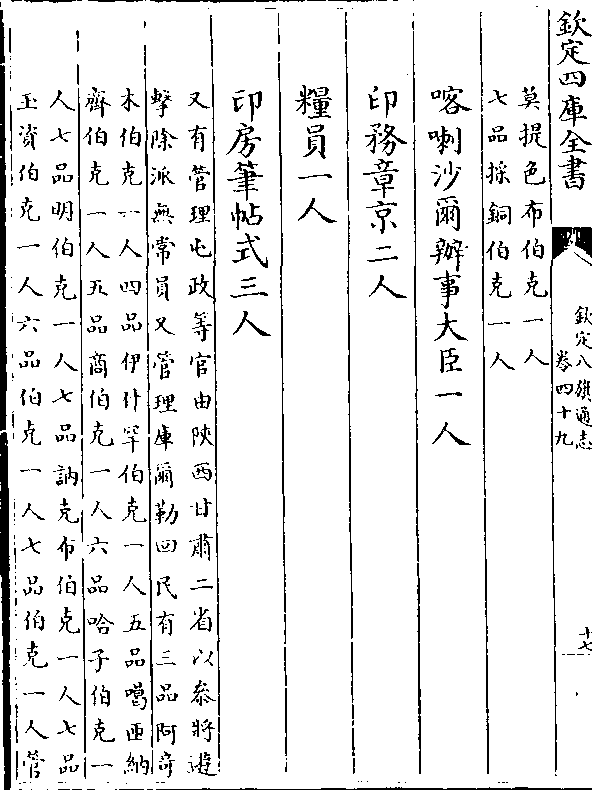 欽定四庫全書
欽定八旗通志
卷四十九
十七
莫提色布伯克一人
七品採銅伯克一人
喀喇沙爾辦事大臣一人
印務章京二人
糧員一人
印房筆帖式三人
又有管理屯政等官由陝西甘肅二省以叅將遊
擊除派無常員又管理庫爾勒回民有三品阿奇
木伯克一人四品伊什罕伯克一人五品噶匝納
齊伯克一人五品商伯克一人六品哈子伯克一
人七品明伯克一人七品訥克布伯克一人七品
玉資伯克一人六品伯克一人七品伯克一人管